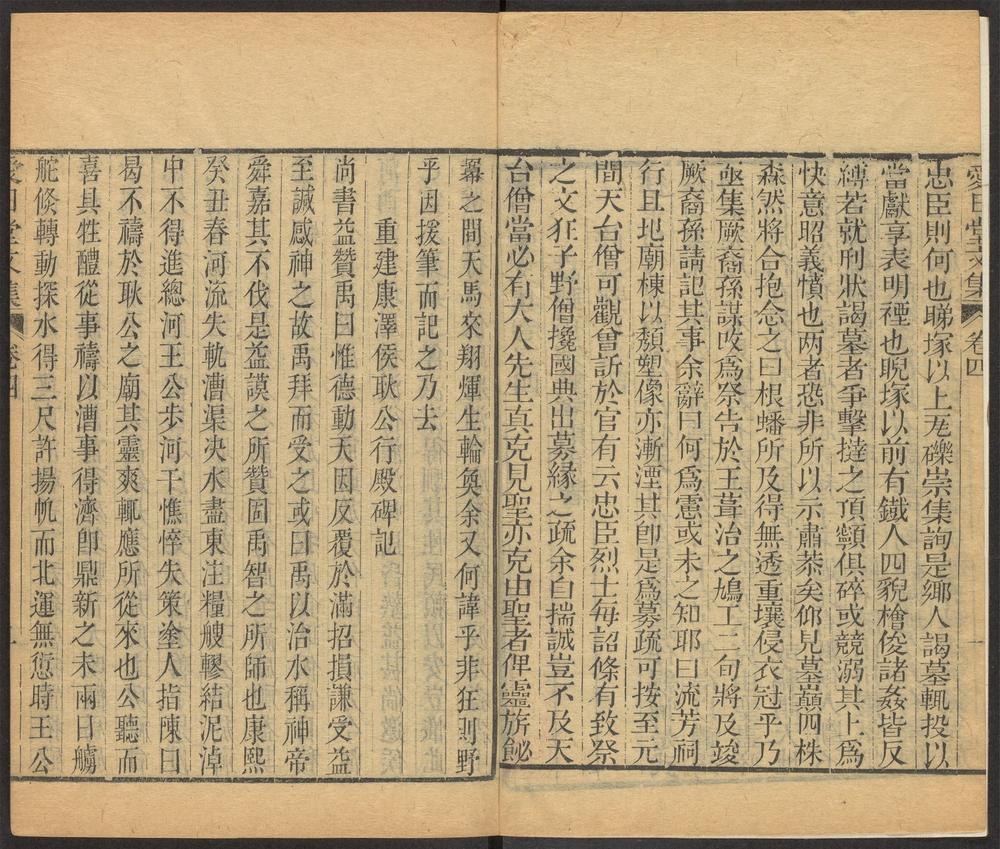 愛日堂文集 卷四
忠臣則何也睇塚以上瓦礫崇集詢是鄉人謁墓輒投以
當獻享表明禋也睨塚以前有鐵人四貌檜俊諸姦皆反
縛若就刑狀謁墓者爭擊撻之頂顙俱碎或競溺其上爲
快意昭義憤也两者恐非所以示肅恭矣仰見墓巔四株
森然將合抱念之曰根蟠所及得無透重壤侵衣冠乎乃
亟集厥裔孫謀改爲祭告於王葺治之鳩工二旬將及竣
厥裔孫請記其事余辭曰何爲憲或未之知耶曰流芳祠
行且圮廟棟以頹塑像亦漸湮其卽是爲募疏可按至元
間天台僧可觀曾訴於官有云忠臣烈士每詔條有致祭
之文狂子野僧攙國典出募緣之疏余自揣誠豈不及天
台僧當必有大人先生真克見聖亦克由聖者俾靈旂飶
羃之間天馬來翔煇生輪奐余又何諱乎非狂則野
乎因援筆而記之乃去
重建康澤侯耿公行殿碑記
尚書益贊禹曰惟德動天因反覆於滿招損謙受益
至諴感神之故禹拜而受之或曰禹以治水稱神帝
舜嘉其不伐是益謨之所贊固禹智之所師也康熙
癸丑春河流失軌漕渠决水盡東注糧艘轇結泥淖
中不得進總河王公步河干憔悴失策塗人指陳曰
曷不禱於耿公之廟其靈爽輒應所從來也公聽而
喜具牲醴從事禱以漕事得濟卽鼎新之未兩日艫
舵倐轉動探水得三尺許揚帆而北運無愆時王公
愛日堂文集 卷四 一